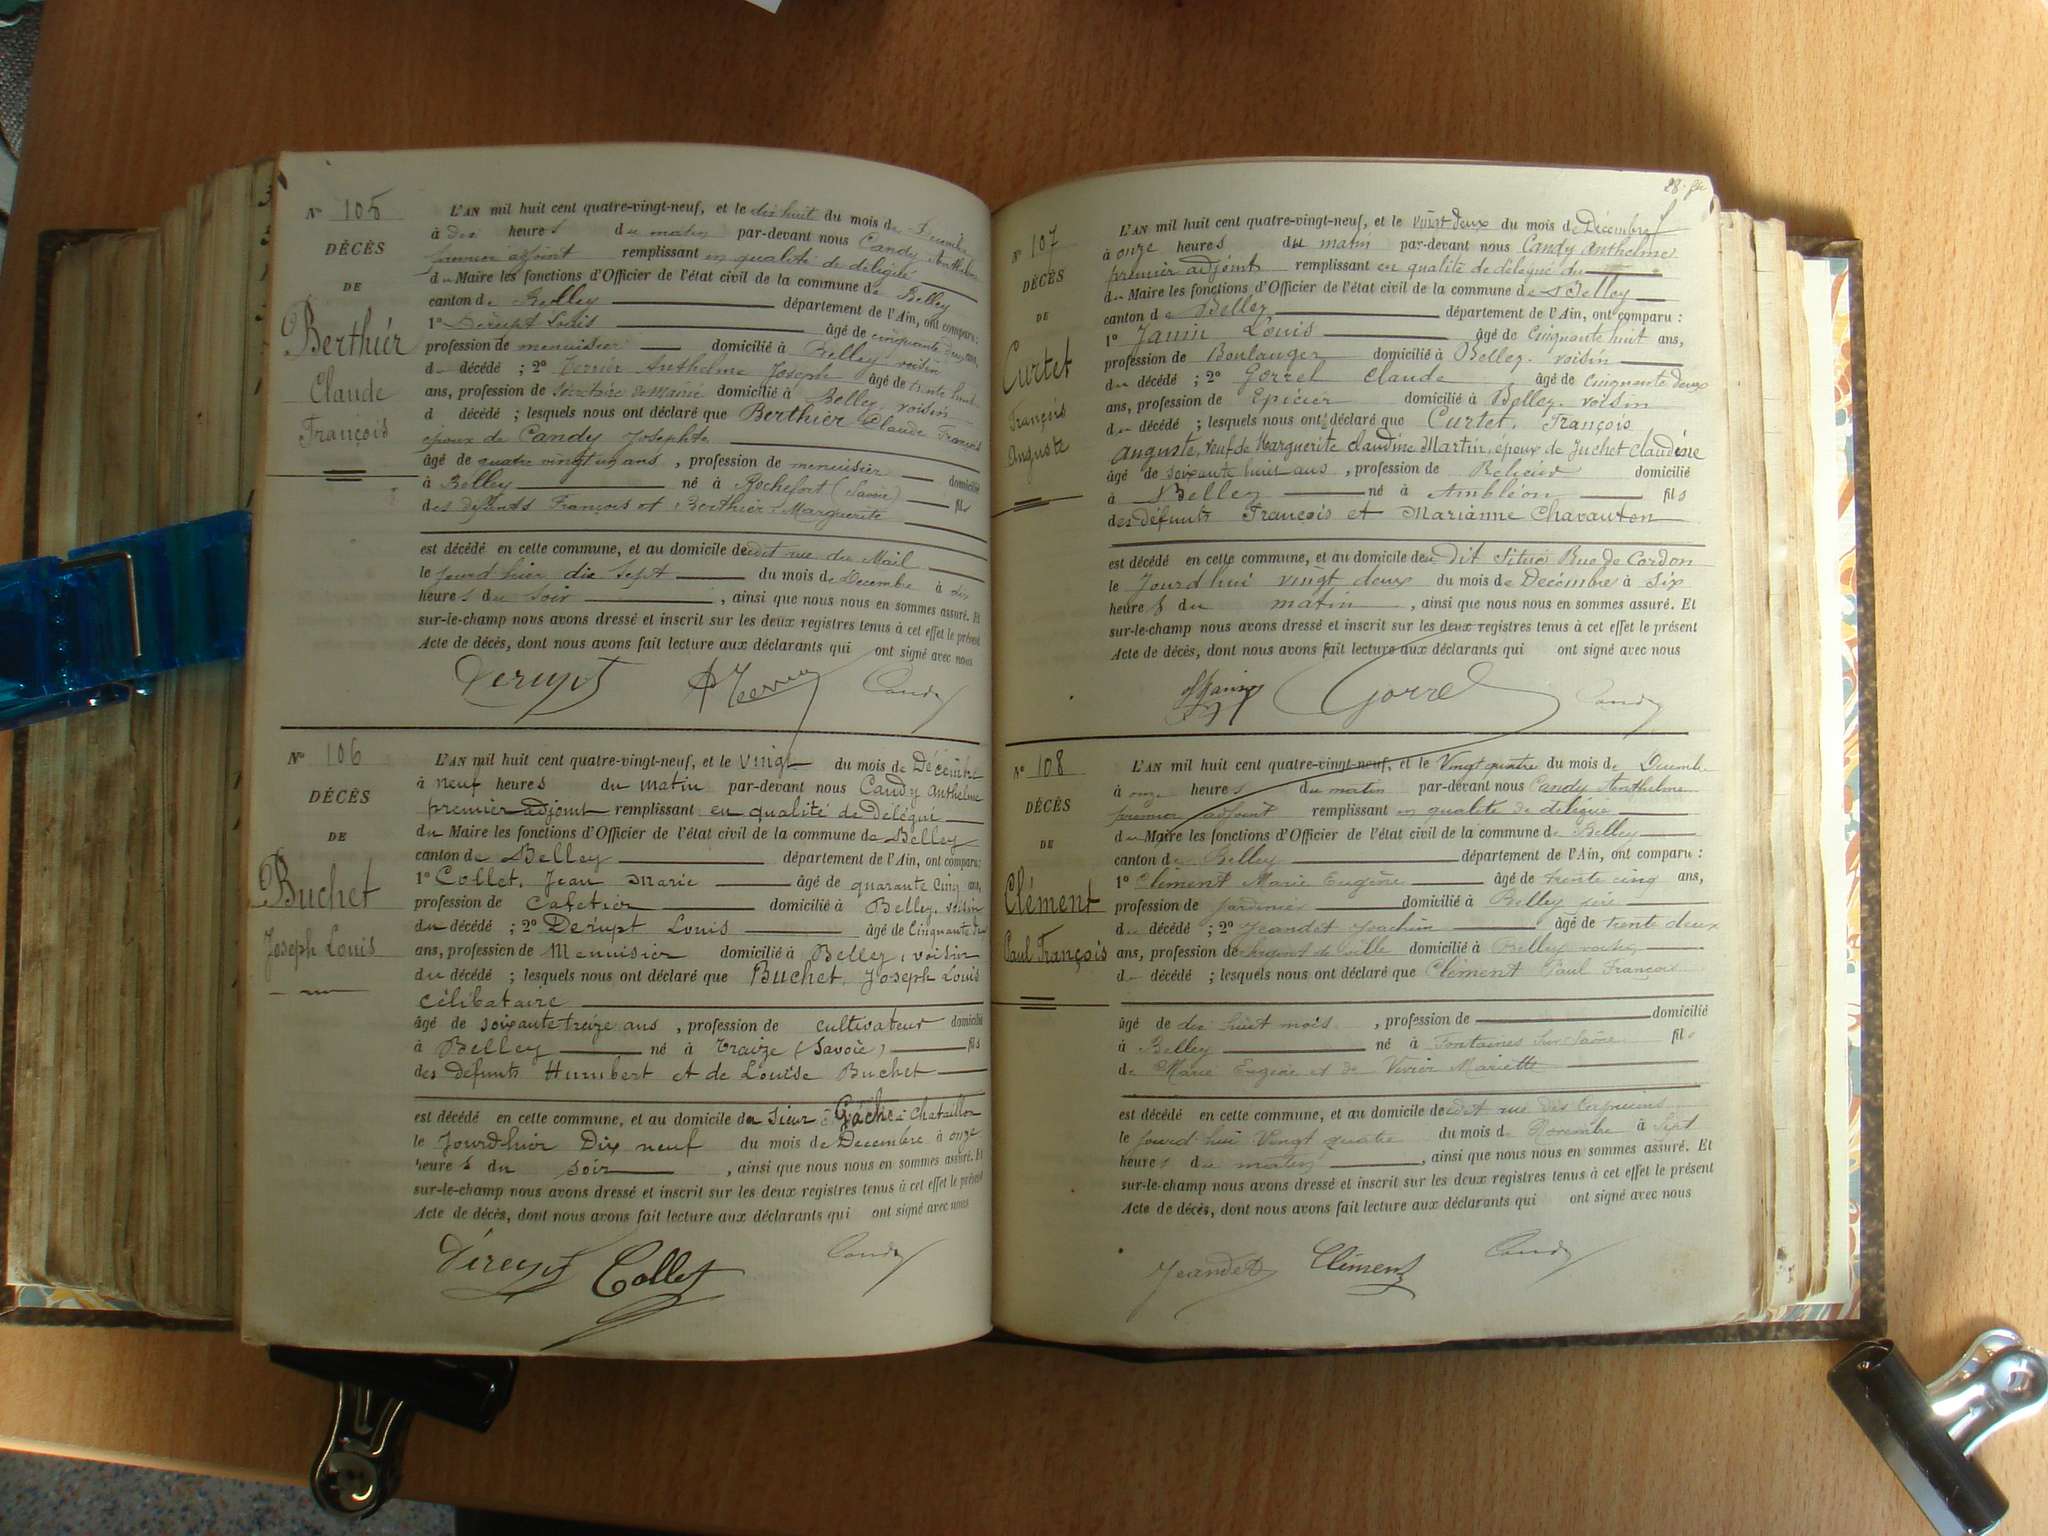 Nº 105
DÉCÈS
DE
Berthier
Claude
François
L'AN mil huit cent quatre-vingt-neuf, et le dix huit du mois de Décembre
à dix heures du matin par-devant nous Candy Anthelme
premier adjoint remplissant en qualité de délégué
du Maire les fonctions d'Officier de l'état civil de la commune de Belley
canton de Belley département de l'Ain, ont comparu:
1º Derupt Louis âgé de cinquante deux ans,
profession de menuisier domicilié à Belley voisin
du décédé ; 2º Anthelme Joseph âgé de trente huit
ans, profession de secrétaire de Mairie domicilié à Belley, voisin
d décédé ; lesquels nous ont déclaré que Berthier Claude François
époux de Candy Josephte
âgé de quatre vingt un ans , profession de menuisier domicilié
à Belley né à Rochefort (Savoie) fils
des défunts François et Berthier Marguerite
est décédé en cette commune, et au domicile de dit rue du Mail
le jourd'hier dix sept du mois de Décembre à dix
heures du soir , ainsi que nous nous en sommes assuré. Et
sur-le-champ nous avons dressé et inscrit sur les deux registres tenus à cet effet le présent
Acte de décès, dont nous avons fait lecture aux déclarants qui ont signé avec nous
Derupt Candy
Nº 106
DÉCÈS
DE
Buchet
Joseph Louis
L'AN mil huit cent quatre-vingt-neuf, et le vingt du mois de Décembre
à neuf heures du matin par-devant nous Candy Anthelme
premier adjoint remplissant en qualité de Délégué
du Maire les fonctions d'Officier de l'état civil de la commune de Belley
canton de Belley département de l'Ain, ont comparu:
1º Collet, Jean Marie âgé de quarante cinq ans,
profession de Cafetier domicilié à Belley, voisin
du décédé ; 2º Derupt Louis âgé de Cinquante deux
ans, profession de Menuisier domicilié à Belley, voisin
du décédé ; lesquels nous ont déclaré que Buchet, Joseph Louis
célibataire
âgé de soixante treize ans , profession de cultivateur domicilié
à Belley né à Traize (Savoie) fils
des défunts Humbert et de Louise Buchet
est décédé en cette commune, et au domicile du sieur Gâche à Chataillon
le Jourdhier Dix neuf du mois de Décembre à onze
heures du soir , ainsi que nous nous en sommes assuré. Et
sur-le-champ nous avons dressé et inscrit sur les deux registres tenus à cet effet le présent
Acte de décès, dont nous avons fait lecture aux déclarants qui ont signé avec nous
Derupt Collet Candy
Nº 107
DÉCÈS
DE
Curtet
François
Auguste
L'AN mil huit cent quatre-vingt-neuf, et le vingt-deux du mois de Décembre
à onze heures du matin par-devant nous Candy Anthelme
premier adjoint remplissant en qualité de délégué du
du Maire les fonctions d'Officier de l'état civil de la commune de Belley
canton de Belley département de l'Ain, ont comparu :
1º Janin Louis âgé de Cinquante huit ans,
profession de Boulanger domicilié à Belley. voisin
du décédé ; 2º Gorrel Claude âgé de cinquante deux
ans, profession de Epicier domicilié à Belley. voisin
du décédé ; lesquels nous ont déclaré que Curtet, François
Auguste, veuf de Marguerite Claudine Martin, époux de Juchet Claudine
âgé de soixante huit ans , profession de domicilié
à Belley né à Ambléon fils
des défunts François et Marianne Chavanton
est décédé en cette commune, et au domicile du dit Situé Rue de Cordon
le Jourd'hui vingt deux du mois de Décembre à Six
heures du matin , ainsi que nous nous en sommes assuré. Et
sur-le-champ nous avons dressé et inscrit sur les deux registres tenus à cet effet le présent
Acte de décès, dont nous avons fait lecture aux déclarants qui ont signé avec nous
Gorrel Candy
Nº 108
DÉCÈS
DE
Clément
Paul François
L'AN mil huit cent quatre-vingt-neuf, et le Vingt quatre du mois de Décembre
à onze heures du matin par-devant nous Candy Anthelme
premier adjoint remplissant en qualité de délégué
du Maire les fonctions d'Officier de l'état civil de la commune de Belley
canton de Belley département de l'Ain, ont comparu :
1º Clément Marie Eugène âgé de trente cinq ans,
profession de jardinier domicilié à Belley père
du décédé ; 2º Jeandet Joachim âgé de trente deux
ans, profession de sergent de ville domicilié à Belley voisin
d décédé ; lesquels nous ont déclaré que Clément Paul François
âgé de dix huit mois , profession de domicilié
à Belley né à Fontaines sur Saône fils
de Marie Eugène et de Vivier Mariette
est décédé en cette commune, et au domicile de dit rue des Capucins
le jourd'hui Vingt quatre du mois de Novembre à Sept
heures du matin , ainsi que nous nous en sommes assuré. Et
sur-le-champ nous avons dressé et inscrit sur les deux registres tenus à cet effet le présent
Acte de décès, dont nous avons fait lecture aux déclarants qui ont signé avec nous
Jeandet Clément Candy